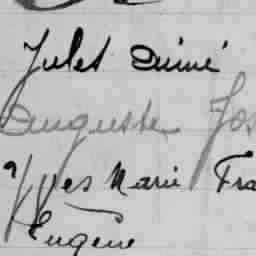 Jules Aimé
Auguste Jos
Yves Marie Fra
Eugène